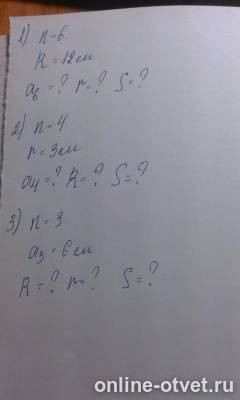 1) n-6
R=12см
a₆=? r=? S=?
2) n-4
r=3см
a₄=? R=? S=?
3) n=3
a₃=6см
R=? r=? S=?
online-otvet.ru